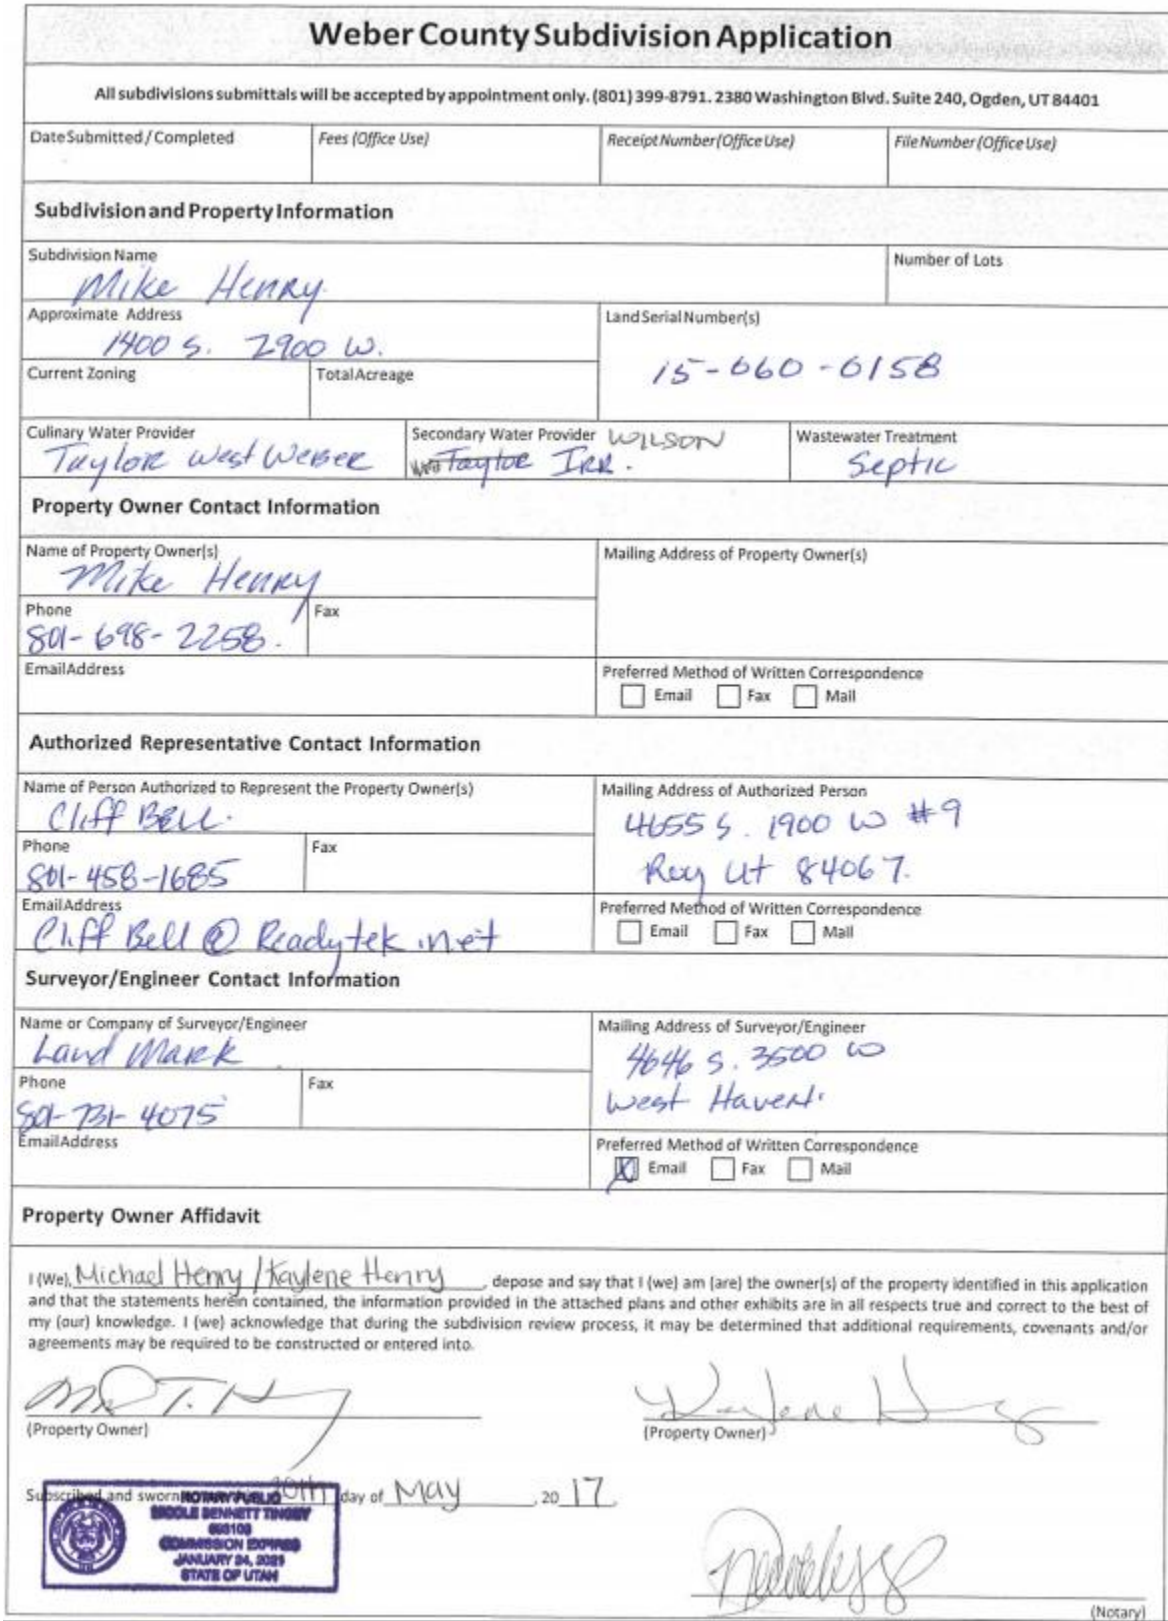 Weber County Subdivision Application
All subdivisions submittals will be accepted by appointment only. (801) 399-8791. 2380 Washington Blvd. Suite 240, Ogden, UT 84401
Date Submitted / Completed
Fees (Office Use)
Receipt Number (Office Use)
File Number (Office Use)
Subdivision and Property Information
Subdivision Name
Mike Henry
Number of Lots
Approximate Address
1400 S. 2900 W.
Land Serial Number(s)
15-060-0158
Current Zoning
Total Acreage
Culinary Water Provider
Taylor West Weber
Secondary Water Provider WILSON
Taylor IRR.
Wastewater Treatment
Septic
Property Owner Contact Information
Name of Property Owner(s)
Mike Henry
Mailing Address of Property Owner(s)
Phone
801-698-2258.
Fax
Email Address
Preferred Method of Written Correspondence
Email Fax Mail
Authorized Representative Contact Information
Name of Person Authorized to Represent the Property Owner(s)
Cliff Bell.
Mailing Address of Authorized Person
4655 S. 1900 W #9
Roy Ut 84067.
Phone
801-458-1685
Fax
Email Address
Cliff Bell @ Readytek.net
Preferred Method of Written Correspondence
Email Fax Mail
Surveyor/Engineer Contact Information
Name or Company of Surveyor/Engineer
Land Mark
Mailing Address of Surveyor/Engineer
4646 S. 3500 W
West Haven.
Phone
801-731-4075
Fax
Email Address
Preferred Method of Written Correspondence
Email Fax Mail
Property Owner Affidavit
I (We), Michael Henry / Kaylene Henry, depose and say that I (we) am (are) the owner(s) of the property identified in this application
and that the statements herein contained, the information provided in the attached plans and other exhibits are in all respects true and correct to the best of
my (our) knowledge. I (we) acknowledge that during the subdivision review process, it may be determined that additional requirements, covenants and/or
agreements may be required to be constructed or entered into.
(Property Owner)
Kaylene H
(Property Owner)
Subscribed and sworn 20th day of May, 20 17
NOTARY PUBLIC
BENNETT
COMMISSION EXPIRES
JANUARY 24, 2021
STATE OF UTAH
(Notary)